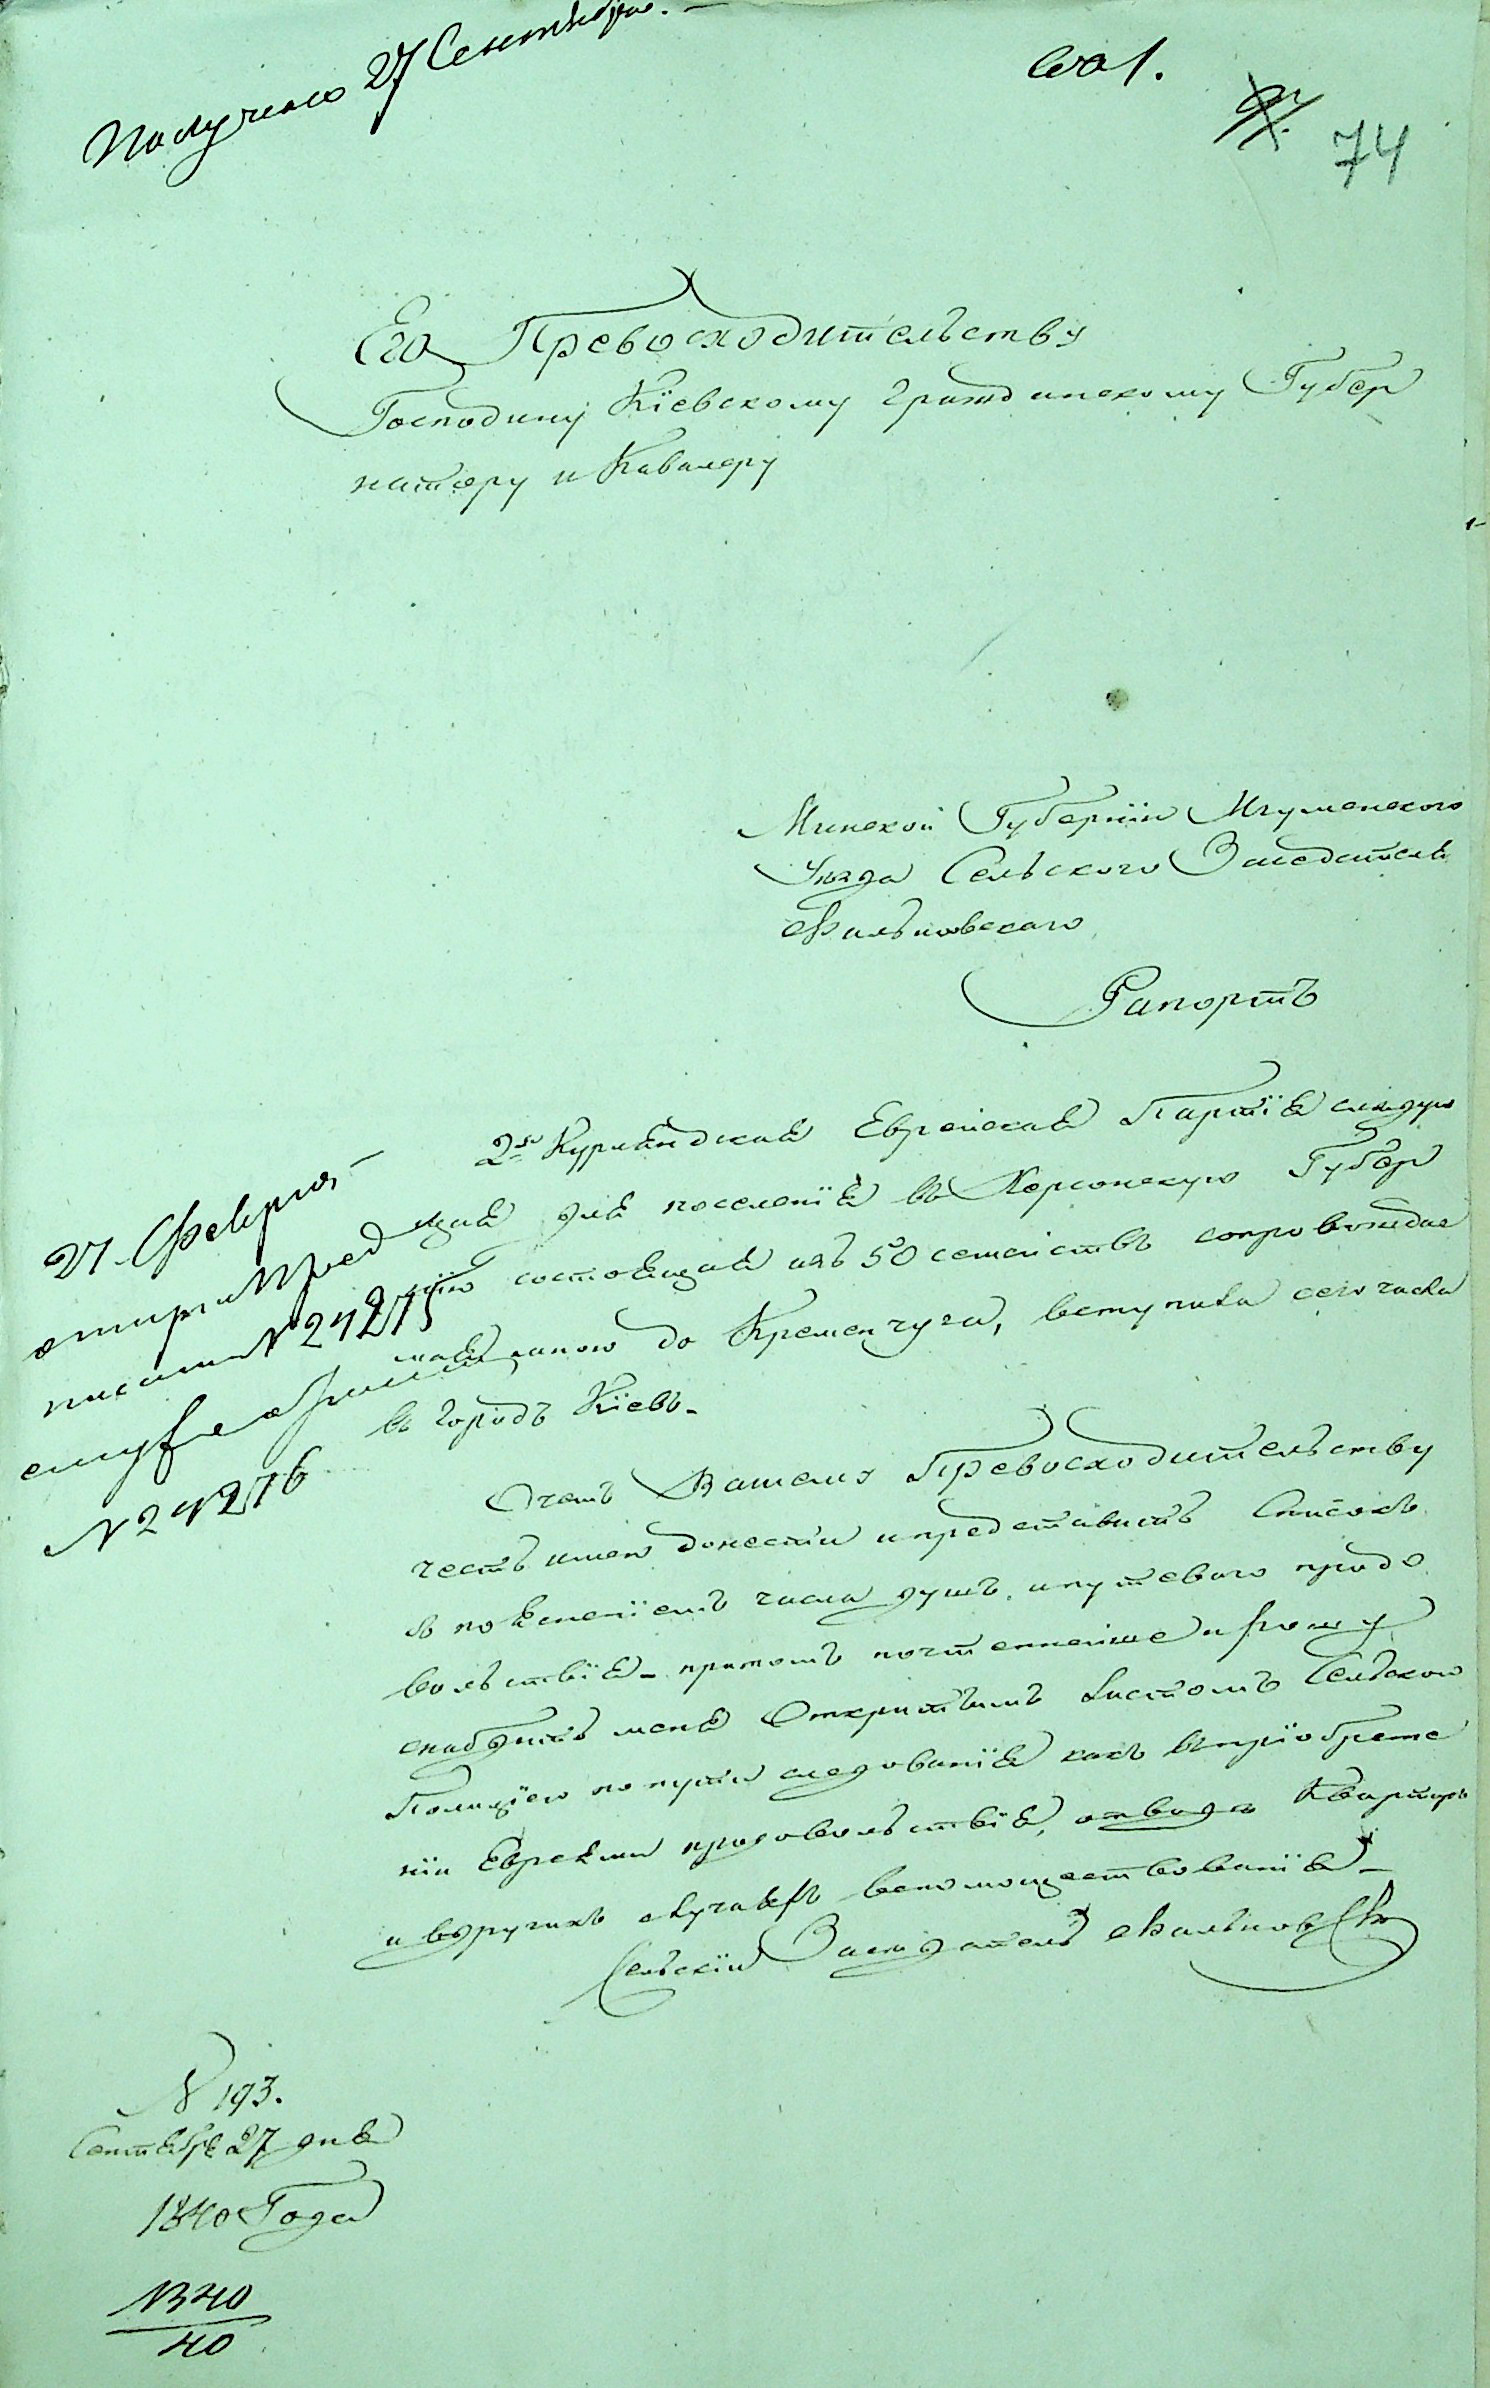 Получено 27 Сентября.
74
Его Превосходительству
Господину Кіевскому Гражданскому Губер
натору и Кавалеру
Минской Губерніи Игуменского
Уезда Сельского Заседателя
Фальковского
Рапортъ
2я Курляндская Еврейская Партія следую
щая для поселенія въ Херсонскую Губер
нію состоящая изъ 50 семействъ сопровождае
мая мною до Кременчуга, вступила сего числа
въ городъ Кіевъ.
О чемъ Вашему Превосходительству
честь имею донести и представить Списокъ
съ поясненіемъ числа душъ и путевого продо
вольствія притомъ почтеннейше прошу
снабдить меня Открытымъ Листомъ Сельскою
Полиціею по пути следованія какъ въ пріобрете
ніи Евреями продовольствія, отвода Квартиръ
и въ другихъ случаяхъ вспомоществованія
Сельскій Заседатель Фальковскій
27
№ 24275
№ 24276
№ 193.
Сентября 27 дня
1840 Года
40